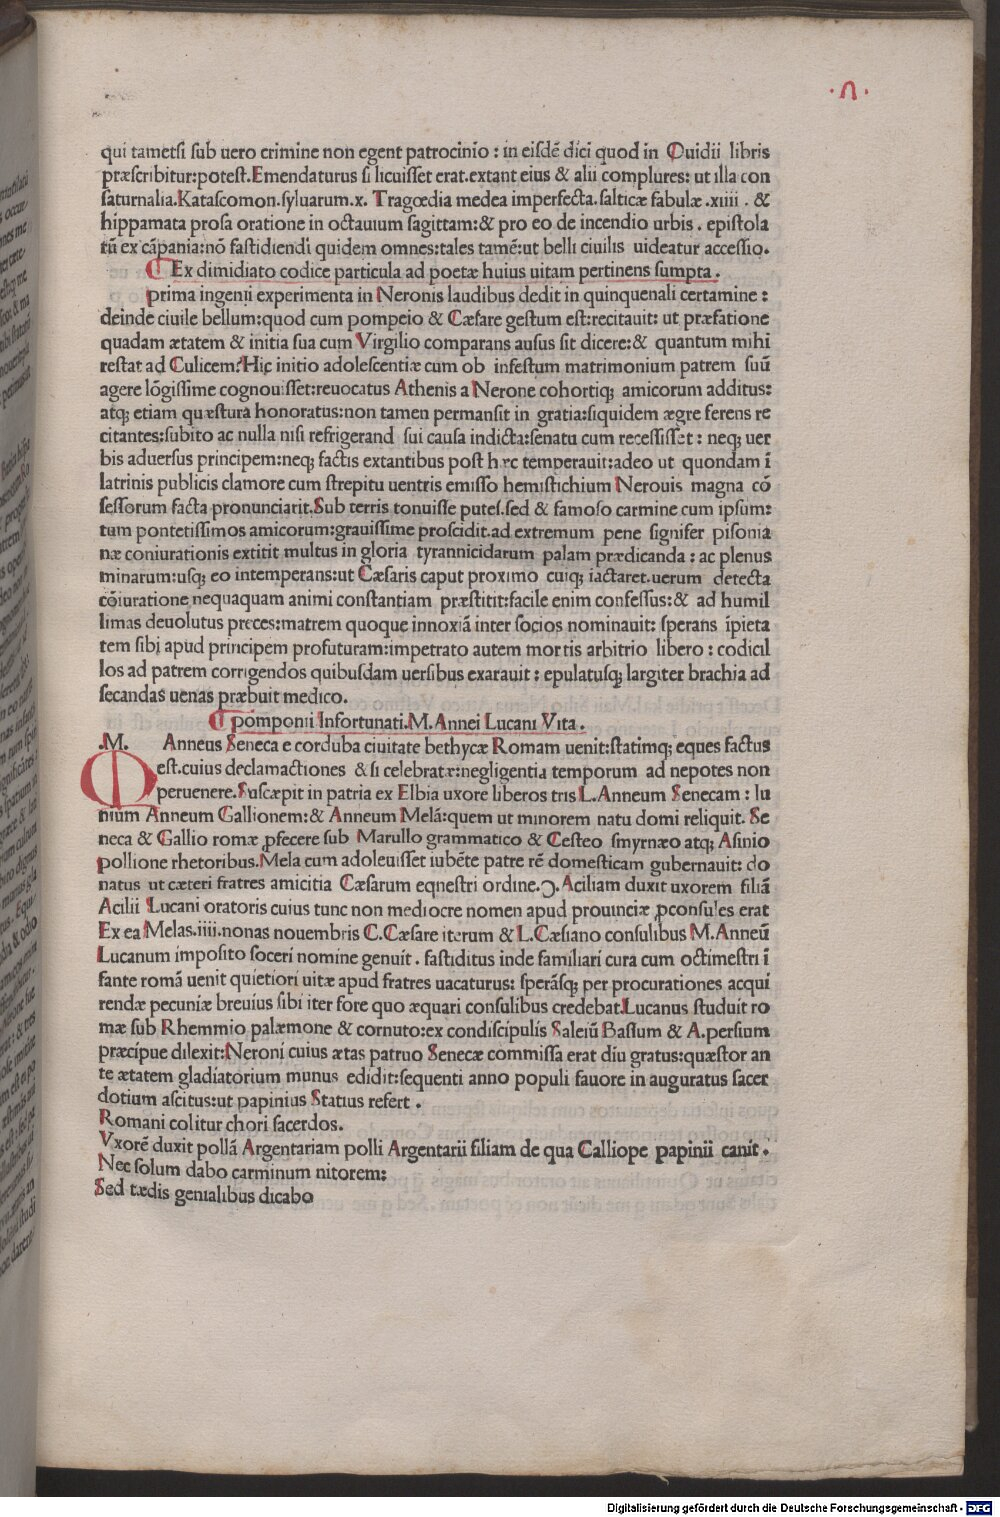 ·n·
qui tametsi sub uero crimine non egent patrocinio : in eisdē dici quod in Ouidii libris
præscribitur:potest.Emendaturus si licuisset erat.extant eius & alii complures: ut illa con
saturnalia.Katascomon.syluarum.x. Tragœdia medea imperfecta.salticæ fabulæ .xiiii . &
hippamata prosa oratione in octauium sagittam:& pro eo de incendio urbis . epistola
tū ex cāpania:nō fastidiendi quidem omnes:tales tamē:ut belli ciuilis uideatur accessio.
Ex dimidiato codice particula ad poetæ huius uitam pertinens sumpta .
prima ingenii experimenta in Neronis laudibus dedit in quinquenali certamine :
deinde ciuile bellum:quod cum pompeio & Cæsare gestum est:recitauit: ut præfatione
quadam ætatem & initia sua cum Virgilio comparans ausus sit dicere:& quantum mihi
restat ad Culicem? Hic initio adolescentiæ cum ob infestum matrimonium patrem suū
agere lōgissime cognouisset:reuocatus Athenis a Nerone cohortiq; amicorum additus:
atq; etiam quæstura honoratus:non tamen permansit in gratia:siquidem ægre ferens re
citantes:subito ac nulla nisi refrigerand sui causa indicta:senatu cum recessisset : neq; uer
bis aduersus principem:neq; factis extantibus post hæc temperauit:adeo ut quondam ī
latrinis publicis clamore cum strepitu uentris emisso hemistichium Nerouis magna cō
sessorum facta pronunciarit.Sub terris tonuisse putes.sed & famoso carmine cum ipsum:
tum pontetissimos amicorum:grauissime proscidit.ad extremum pene signifer pisonia
næ coniurationis extitit multus in gloria tyrannicidarum palam prædicanda : ac plenus
minarum:usq; eo intemperans:ut Cæsaris caput proximo cuiq; iactaret.uerum detecta
cōiuratione nequaquam animi constantiam præstitit:facile enim confessus:& ad humil
limas deuolutus preces:matrem quoque innoxiā inter socios nominauit: sperans īpieta
tem sibi apud principem profuturam:impetrato autem mortis arbitrio libero : codicil
los ad patrem corrigendos quibusdam uersibus exarauit : epulatusq; largiter brachia ad
secandas uenas præbuit medico.
pomponii Infortunati.M.Annei Lucani Vita .
.M. Anneus Seneca e corduba ciuitate bethycæ Romam uenit:statimq; eques factus
est.cuius declamactiones & si celebratæ:negligentia temporum ad nepotes non
peruenere.Suscæpit in patria ex Elbia uxore liberos tris L.Anneum Senecam : Iu
nium Anneum Gallionem:& Anneum Melā:quem ut minorem natu domi reliquit. Se
neca & Gallio romæ ꝓfecere sub Marullo grammatico & Cesteo smyrnæo atq; Asinio
pollione rhetoribus.Mela cum adoleuisset iubēte patre rē domesticam gubernauit: do
natus ut cæteri fratres amicitia Cæsarum eqnestri ordine.Ↄ. Aciliam duxit uxorem filiā
Acilii Lucani oratoris cuius tunc non mediocre nomen apud prouinciæ ꝓconsules erat
Ex ea Melas.iiii.nonas nouembris C.Cæsare iterum & L.Cæsiano consulibus M.Anneū
Lucanum imposito soceri nomine genuit . fastiditus inde familiari cura cum octimestri ī
fante romā uenit quietiori uitæ apud fratres uacaturus: sperāsq; per procurationes acqui
rendæ pecuniæ breuius sibi iter fore quo æquari consulibus credebat.Lucanus studuit ro
mæ sub Rhemmio palæmone & cornuto:ex condiscipulis Saleiū Bassum & A.persium
præcipue dilexit:Neroni cuius ætas patruo Senecæ commissa erat diu gratus:quæstor an
te ætatem gladiatorium munus edidit:sequenti anno populi fauore in auguratus sacer
dotium ascitus:ut papinius Statius refert .
Romani colitur chori sacerdos.
Vxorē duxit pollā Argentariam polli Argentarii filiam de qua Calliope papinii canit .
Nec solum dabo carminum nitorem:
Sed tædis genialibus dicabo
Digitalisierung gefördert durch die Deutsche Forschungsgemeinschaft - DFG